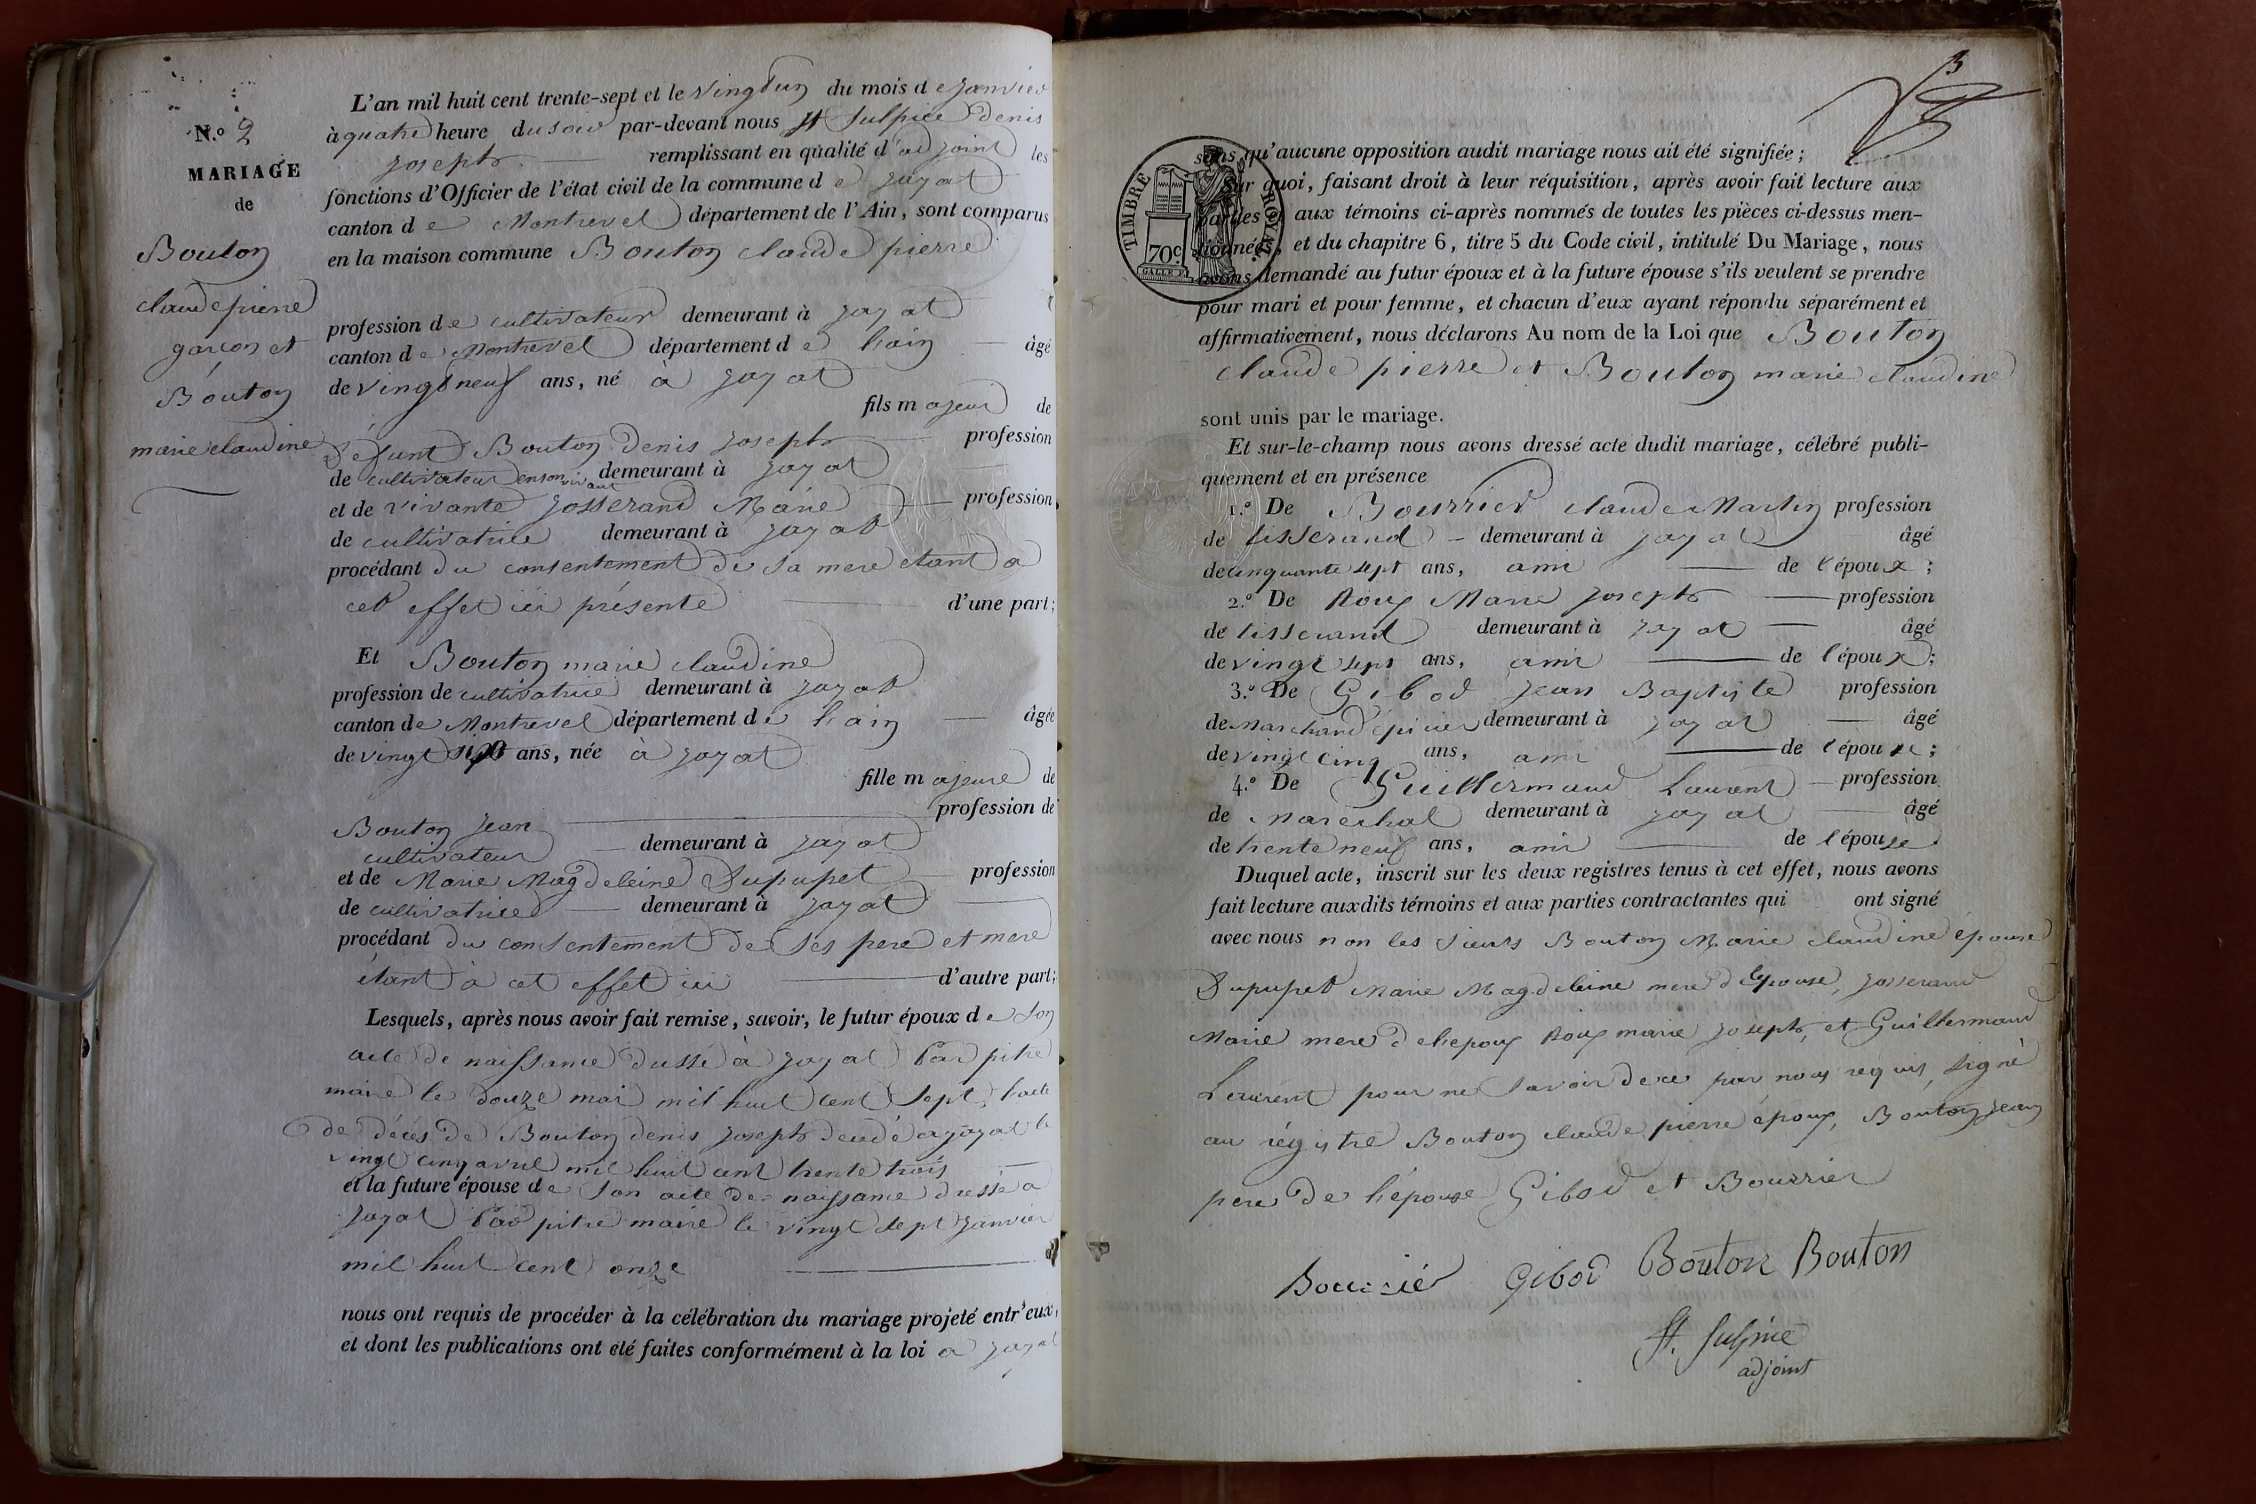 N.o 2
MARIAGE
de
Bouton
claude pierre
garcon et
Bouton
marie claudine
L'an mil huit cent trente-sept et le vingt un du mois de janvier
à quatre heure du soir par-devant nous St Sulpice denis
joseph remplissant en qualité d'adjoint les
fonctions d'Officier de l'état civil de la commune de jayat
canton de Montrevel département de l'Ain, sont comparus
en la maison commune Bouton claude pierre
profession de cultivateur demeurant à jayat
canton de Montrevel département de lain âgé
de vingt neuf ans, né à jayat
fils majeur de
défunt Bouton denis joseph profession
de cultivateur en son vivant demeurant à jayat
et de vivante josserand Marie profession
de cultivatrice demeurant à jayat
procédant du consentement de sa mere etant a
cet effet ici présente d'une part;
Et Bouton marie claudine
profession de cultivatrice demeurant à jayat
canton de Montrevel département de lain âgée
de vingt six ans, née à jayat
fille majeure de
profession de
Bouton jean
cultivateur demeurant à jayat
et de Marie Magdeleine Dupupet profession
de cultivatrice demeurant à jayat
procédant du consentement de ses pere et mere
étant à cet effet ici d'autre part;
Lesquels, après nous avoir fait remise, savoir, le futur époux de son
acte de naissance dressé à jayat par pitre
maire le douze mai mil huit cent sept, lacte
de décés de Bouton denis joseph décédé a jayat le
vingt cinq avril mil huit cent trente trois
et la future épouse de son acte de naissance dressé a
jayat par pitre maire le vingt sept janvier
mil huit cent onze
nous ont requis de procéder à la célébration du mariage projeté entr'eux,
et dont les publications ont été faites conformément à la loi a jayat
3
TIMBRE ROYAL
70c
sans qu'aucune opposition audit mariage nous ait été signifiée;
Sur quoi, faisant droit à leur réquisition, après avoir fait lecture aux
parties et aux témoins ci-après nommés de toutes les pièces ci-dessus men-
tionnées, et du chapitre 6, titre 5 du Code civil, intitulé Du Mariage, nous
avons demandé au futur époux et à la future épouse s'ils veulent se prendre
pour mari et pour femme, et chacun d'eux ayant répondu séparément et
affirmativement, nous déclarons Au nom de la Loi que Bouton
claude pierre et Bouton marie claudine
sont unis par le mariage.
Et sur-le-champ nous avons dressé acte dudit mariage, célébré publi-
quement et en présence
1.o De Bourrier claude Martin profession
de tisserand demeurant à jayat âgé
de cinquante sept ans, ami de l'époux;
2.o De Roux Marie joseph profession
de tisserand demeurant à jayat âgé
de vingt sept ans, ami de l'époux;
3.o De Gibod jean Baptiste profession
de marchand épicier demeurant à jayat âgé
de vingt cinq ans, ami de l'époux;
4.o De Guillermaud Laurent profession
de marechal demeurant à jayat âgé
de trente neuf ans, ami de l'épouse
Duquel acte, inscrit sur les deux registres tenus à cet effet, nous avons
fait lecture auxdits témoins et aux parties contractantes qui ont signé
avec nous non les sieurs Bouton Marie claudine épouse
Dupupet Marie Magdeleine mere d lepouse, josserand
Marie mere de lepoux Roux marie joseph, et Guillermaud
Laurent pour ne savoir de ce par nous réquis, signé
au régistre Bouton claude pierre époux, Bouton jean
pere de lépouse Gibod et Bourrier
Bourrié Gibod Bouton Bouton
St. Sulpice
adjoint